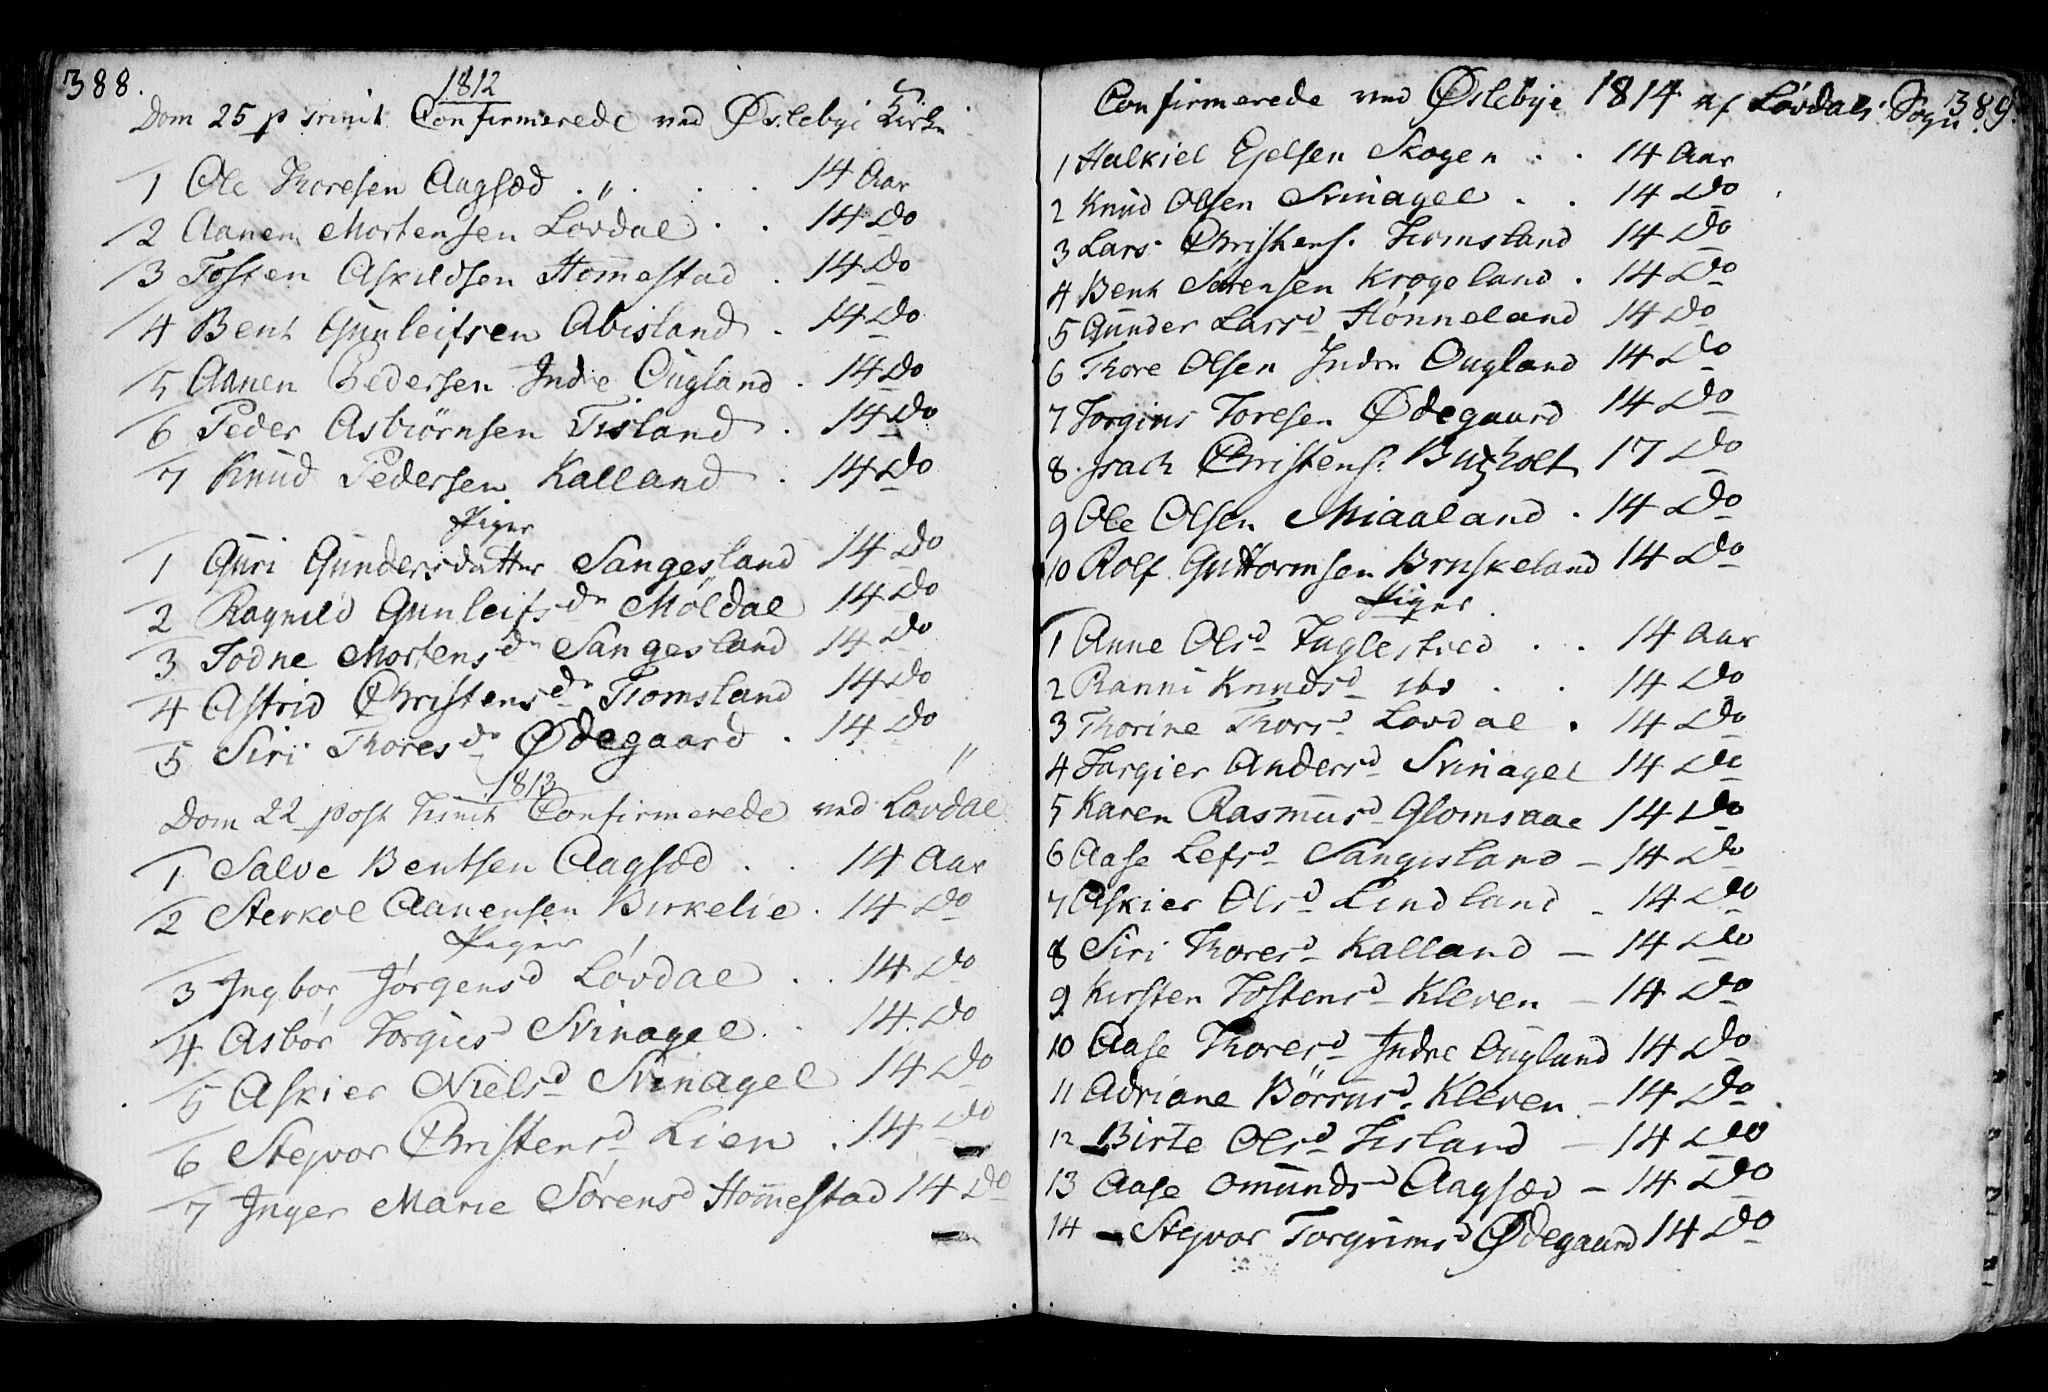 388.
1812
Dom 25 p trinit Confirmerede ved Øslebye Kirke
1 Ole Thoresen Aagsæd . „ . . . 14 Aar
2 Aanen Mortensen Lövdal . . 14 Do
3 Tosten Askildsen Hom̅estad . 14 Do
4 Bent Gunleifsen Abisland . 14 Do
5 Aanen Pedersen Indre Ougland . 14 Do
6 Peder Asbiörnsen Tisland . 14 Do
7 Knud Pedersen Kalland . 14 Do
Piger
1 Guri Gundersdatter Sangesland 14 Do
2 Ragnild Gunleifsdr Möldal 14 Do
3 Todne Mortensdr Sangesland 14 Do
4 Astrid Christensdr Tromsland 14 Do
5 Siri Thoresdr Ødegaard . 14 Do
1813
Dom 22 post trinit Confirmerede ved Lövdal
1 Salve Bentsen Aagsæd . . 14 Aar
2 Sterkol Aanensen Birkelie . 14 Do
Piger
3 Ingbor Jørgensd Løvdal . . 14 Do
4 Asbør Torgiesd Svinagel . . 14 Do
5 Askier Nielsd Svinagel 14 Do
6 Stejvor Christensd Lien . 14 Do
7 Inger Marie Sørensd Hom̅estad 14 Do
389.
Confirmerede ved Øslebye 1814 af Løvdals Sogn
1 Halkiel Ejelsen Skogen . . 14 Aar
2 Knud Olsen Svinagel . . 14 Do
3 Lars Christens. Tromsland 14 Do
4 Bent Sørensen Krogeland . 14 Do
5 Gunder Larsd Hønneland 14 Do
6 Thore Olsen Indre Ougland 14 Do
7 Torgius Toresen Ødegaard 14 Do
8 Isach Christens. Butholt 17 Do
9 Ole Olsen Miaaland . 14 Do
10 Rolf Guttormsen Bruskeland 14 Do
Piger
1 Anne Olsd Fuglestved . . 14 Aar
2 Ranni Knudsd ibd . . 14 Do
3 Thorine Thorsd Lovdal . 14 Do
4 Targier Andersd Svinagel 14 Do
5 Karen Rasmusd Glomsaae 14 Do
6 Aase Lefsd Sangesland – 14 Do
7 Askier Olsd Lindland – 14 Do
8 Siri Thoresd Kalland – 14 Do
9 Kirsten Tostensd Kleven – 14 Do
10 Aase Thoresd Indre Ougland 14 Do
11 Adriane Börrusd Kleven – 14 Do
12 Birte Olsd Tisland – 14 Do
13 Aase Omundsd Aagsæd – 14 Do
14 – Stejvor Torgrimsd Ødegaard 14 Do